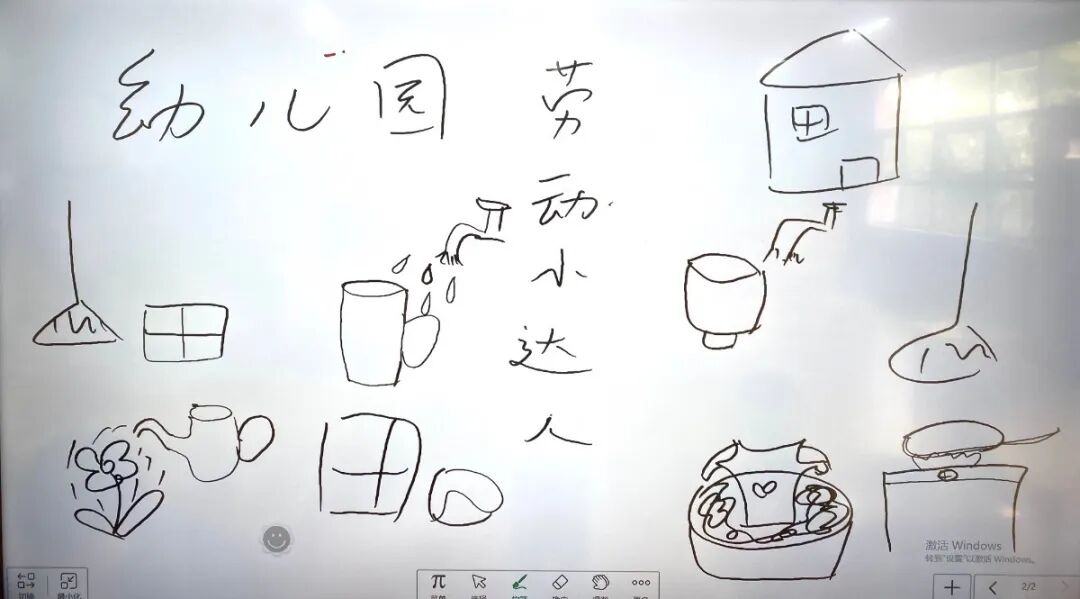 幼儿园
劳动小达人
激活 Windows
转到"设置"以激活 Windows。
2/2